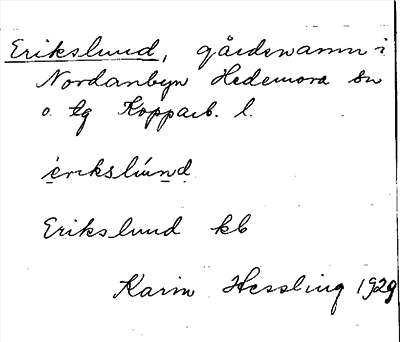 Erikslund, gårdsnamn i
Nordanbyn Hedemora sn
o. tg Kopparb. l.
erikslund
Erikslund kb
Karin Hessling 1929